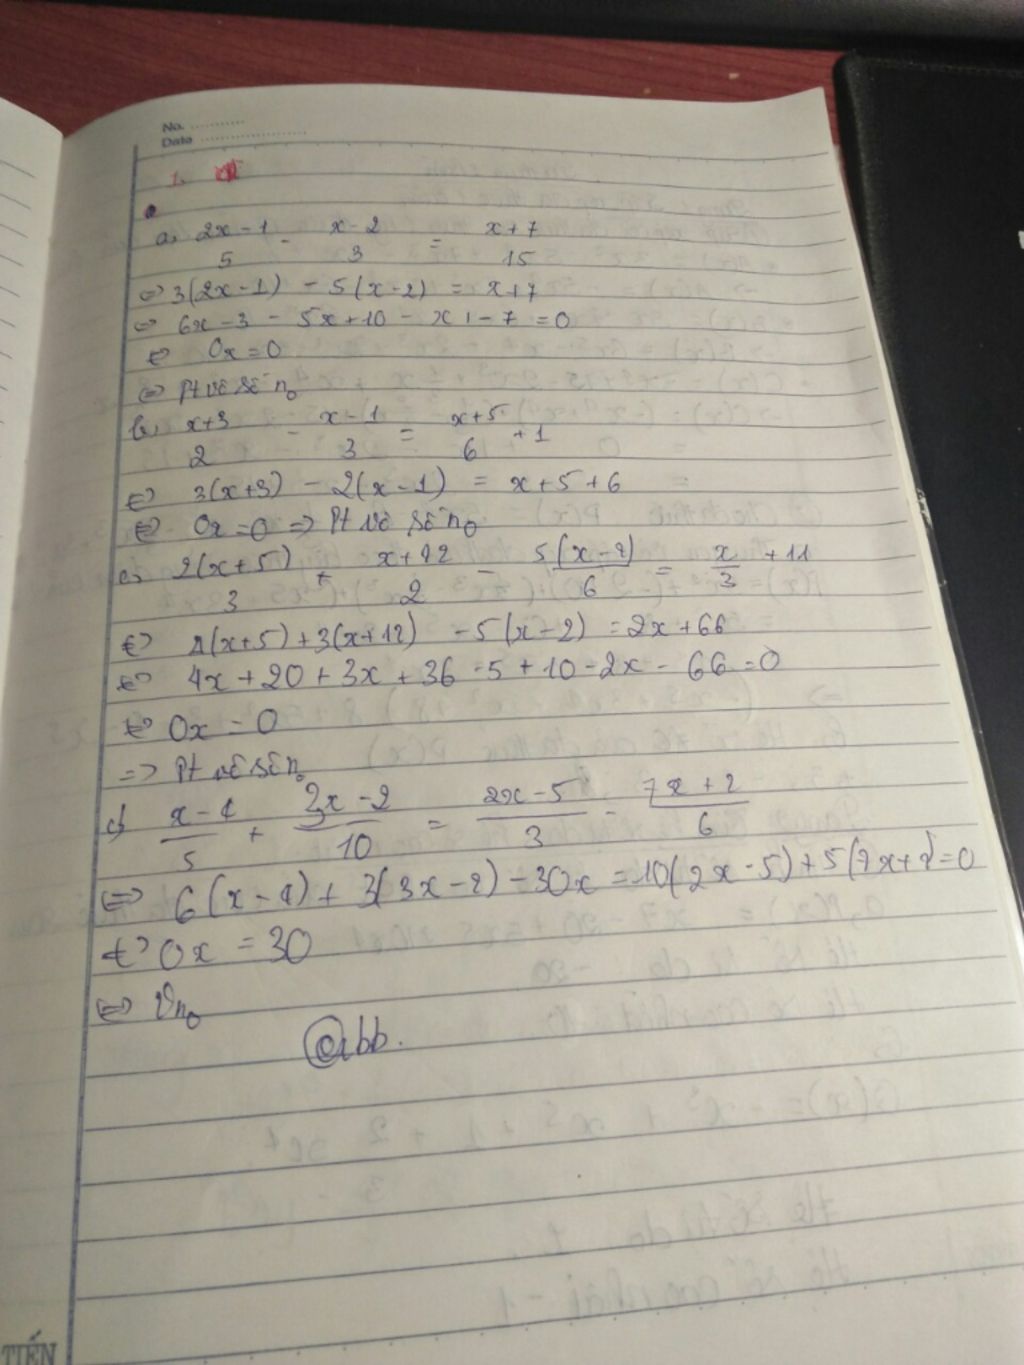 No. ...........
Date ......................
1.
a, 2x-1/5 - x-2/3 = x+7/15
⇔ 3(2x-1) - 5(x-2) = x+7
⇔ 6x-3 - 5x+10 - x - 7 = 0
⇔ 0x=0
⇔ Pt vô số n₀
b, x+3/2 - x-1/3 = x+5/6 +1
⇔ 3(x+3) - 2(x-1) = x+5+6
⇔ 0x=0 ⇒ Pt vô số n₀
c, 2(x+5)/3 + x+12/2 - 5(x-2)/6 = x/3 +11
⇔ 4(x+5)+3(x+12) -5(x-2) =2x+66
⇔ 4x+20+3x+36-5+10-2x-66=0
⇔ 0x=0
⇒ Pt vô số n₀
d, x-4/5 + 3x-2/10 = 2x-5/3 - 7x+2/6
⇔ 6(x-4)+3(3x-2)-30x=10(2x-5)+5(7x+2)=0
⇔ 0x = 30
⇔ Vn₀
@abb.
TIẾN